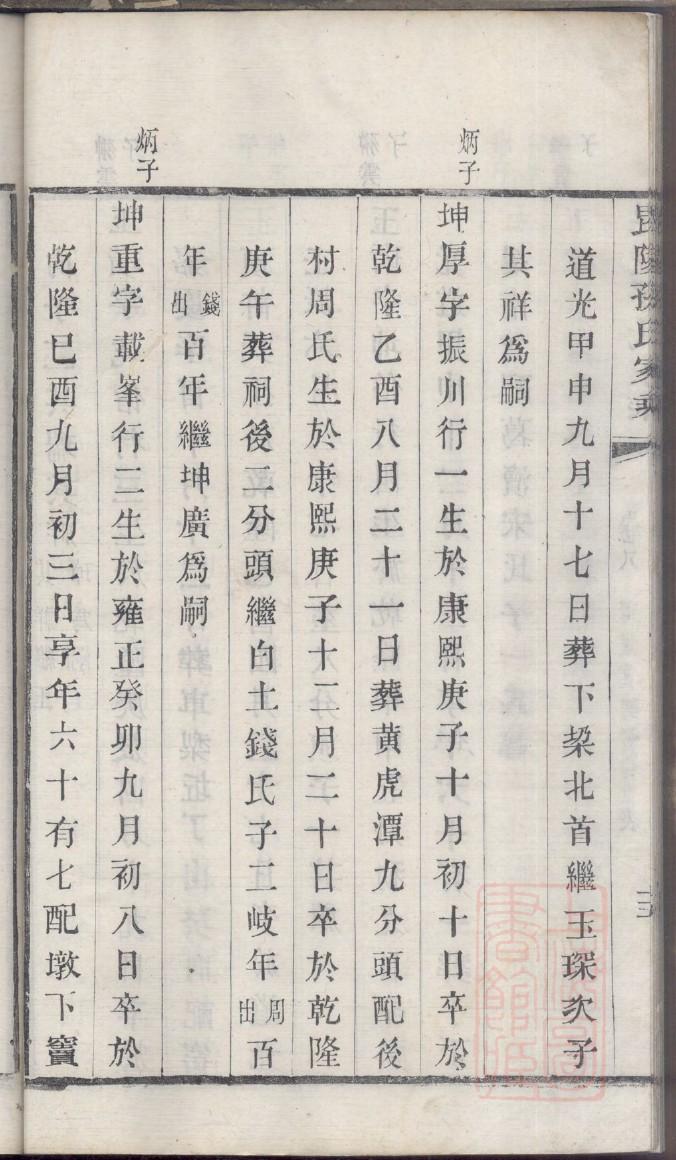 毘陵孫氏家乘
道光甲申九月十七日葬下㮣北首繼玉琛次子
其祥為嗣
炳子
坤厚字振川行一生於康熙庚子十月初十日卒於
乾隆乙酉八月二十一日葬黃虎潭九分頭配後
村周氏生於康熙庚子十二月二十日卒於乾隆
庚午葬祠後二分頭繼白土錢氏子二岐年周出百
年錢出百年繼坤廣為嗣
炳子
坤重字載峯行二生於雍正癸卯九月初八日卒於
乾隆巳酉九月初三日享年六十有七配墩下竇